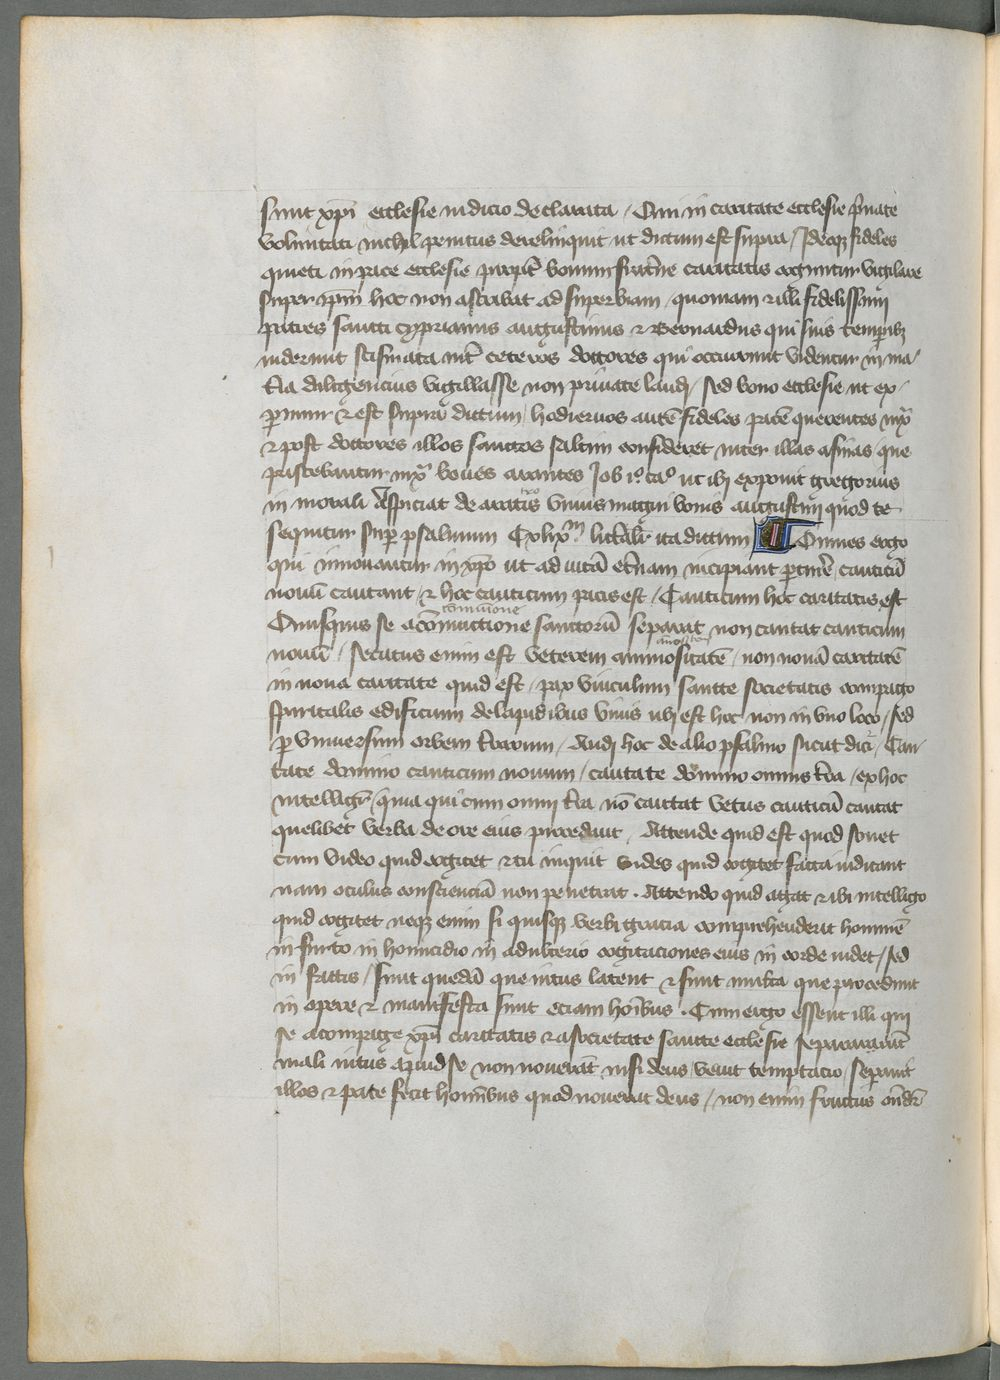 sunt xpi ecclesie iudicio declarata / Qui in caritate ecclesie p̄uate
voluntati nichil penitus derelinquit ut dictum est supra / Ideoqꝫ fideles
quieti in pace ecclesie propt̄ bonum firat̄ne caritatis coguntur vigilare
super ip̄m hoc non ascribat ad superbiam / quoniam ⁊ illi fidelissimi
patres sancti cyprianus augustinus ⁊ Bernardus qui suis temporibꝫ
uiderunt scismata int̄ ceteros doctores qui occurrunt videntur in ma-
t̄ia diligencius vigillasse non priuate laudi / sed bono ecclesie ut ex-
p̄imitur ⁊ est supra dictum / hodiernos autē fideles pacē querentes iux̄
⁊ post doctores illos sanctos saltim consideret inter illas asinas que
pascebantur iux̄ boues arantes Job i.º ca.º ut ibi exponit gregorius
in morali Aspiciat de aratris vnius magni bouis augustini quod te
sequitur sup̄ psalmum Cxlix.m litt̄alit̄ ita dictum Omnes ergo
qui innouantur in xp̄o ut ad uitā et̄nam incipiant p̄tin̄e / canticū
nouū cantant / ⁊ hoc canticum pacis est / Canticum hoc caritatis est
communione
Quisquis se a coniunctione sanctorū separat non cantat canticum
nouū / secutus enim est veterem animositatē / non nouā caritatē
in noua caritate quid est / pax vinculum sancte societatis compago
spiritalis edificium de lapidibus viuis ubi est hoc non in vno loco / sed
p̄ vniuersum orbem t̄rarum / Audi hoc de alio psalmo sicut dicit̄ / Can-
tate domino canticum nouum / cantate domino omnis t̄ra / ex hoc
intelligit̄ / quia qui cum omni t̄ra nō cantat vetus canticū cantat
quelibet verba de ore eius procedant / Attende quid est quod sonet
cum video quid cogitet ⁊ tu inquit vides quid cogitet facta indicant
nam oculus conscienciā non penetrat . Attendo quid agat ⁊ ibi intelligo
quid cogitet neqꝫ enim si quisqꝫ verbi gracia comprehenderit hominē
in furto in homicidio in adulterio cogitaciones eius in corde uidet / sed
in factis / sunt quedā que intus latent ⁊ sunt multa que procedunt
in opere ⁊ manifesta sunt eciam hoībus . Cum ergo essent illi qui
se a compage xpi caritatis ⁊ a societate sancte ecclesie separarunt
mali intus apud se non nouerat nisi deus / venit temptacio / separauit
illos ⁊ pate fecit hominibus quod nouerat deus / non enim fructus on̄dit̄